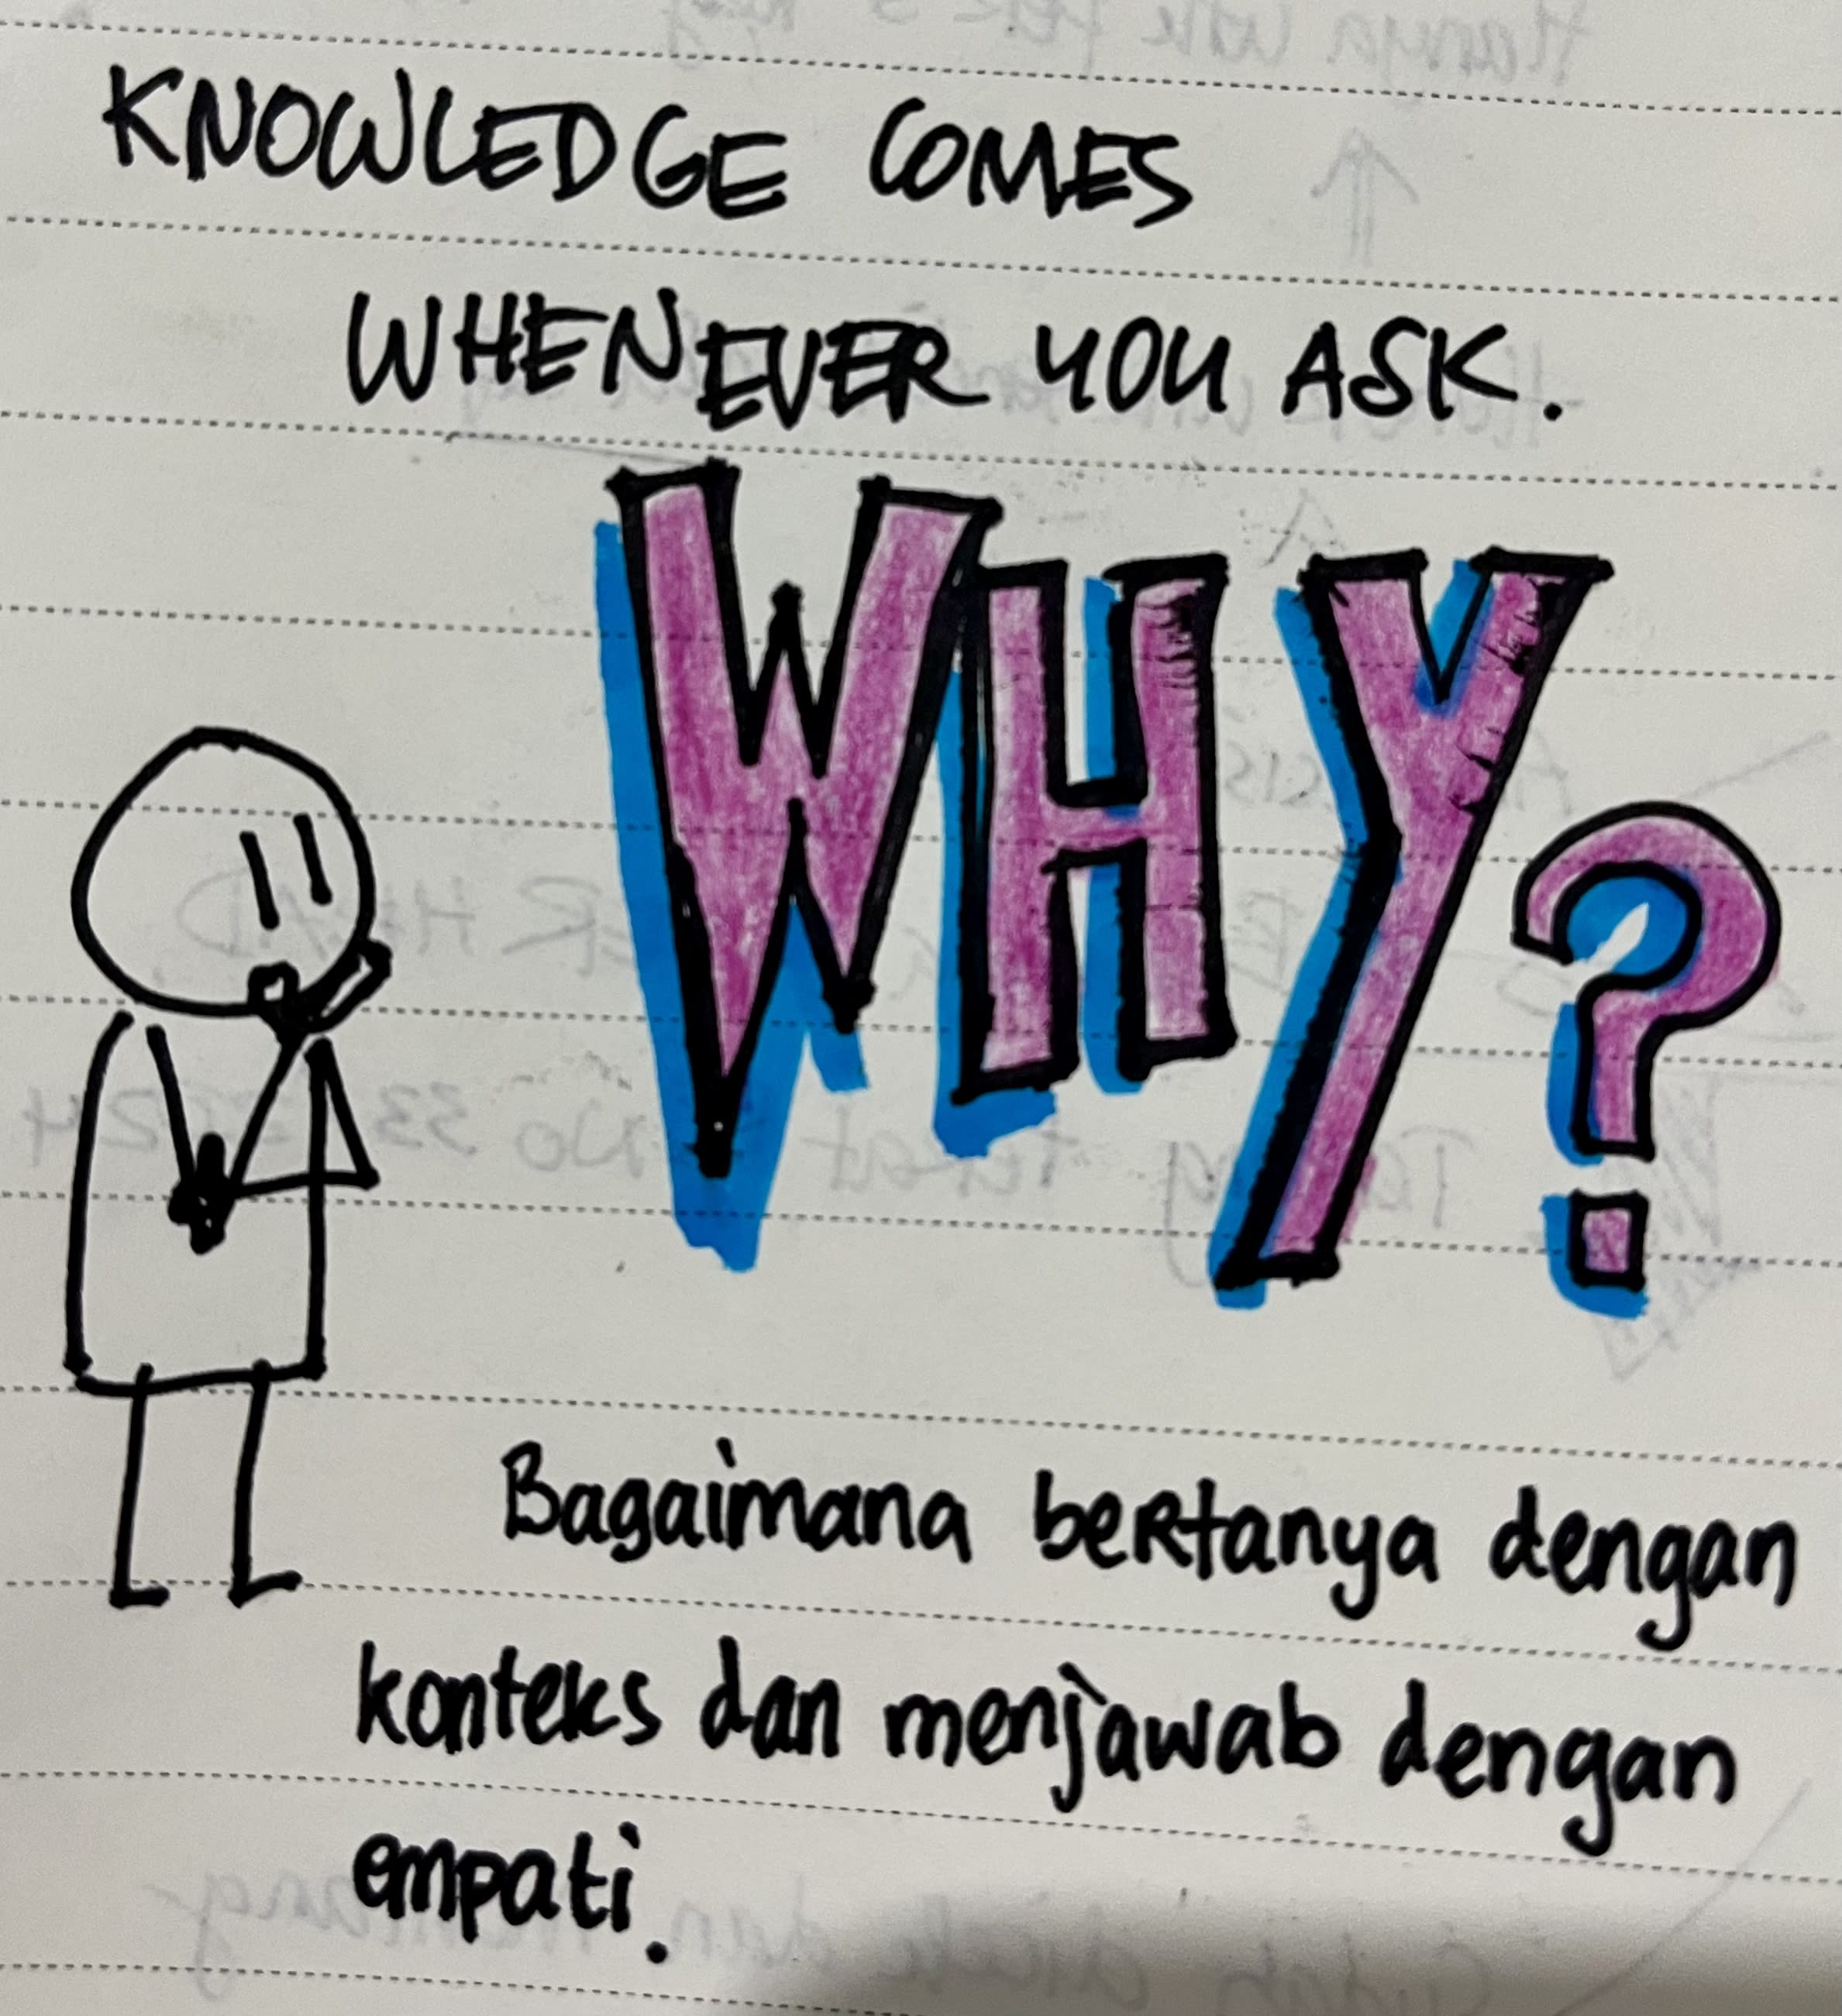 KNOWLEDGE COMES
WHENEVER YOU ASK.
WHY?
Bagaimana bertanya dengan
konteks dan menjawab dengan
empati.